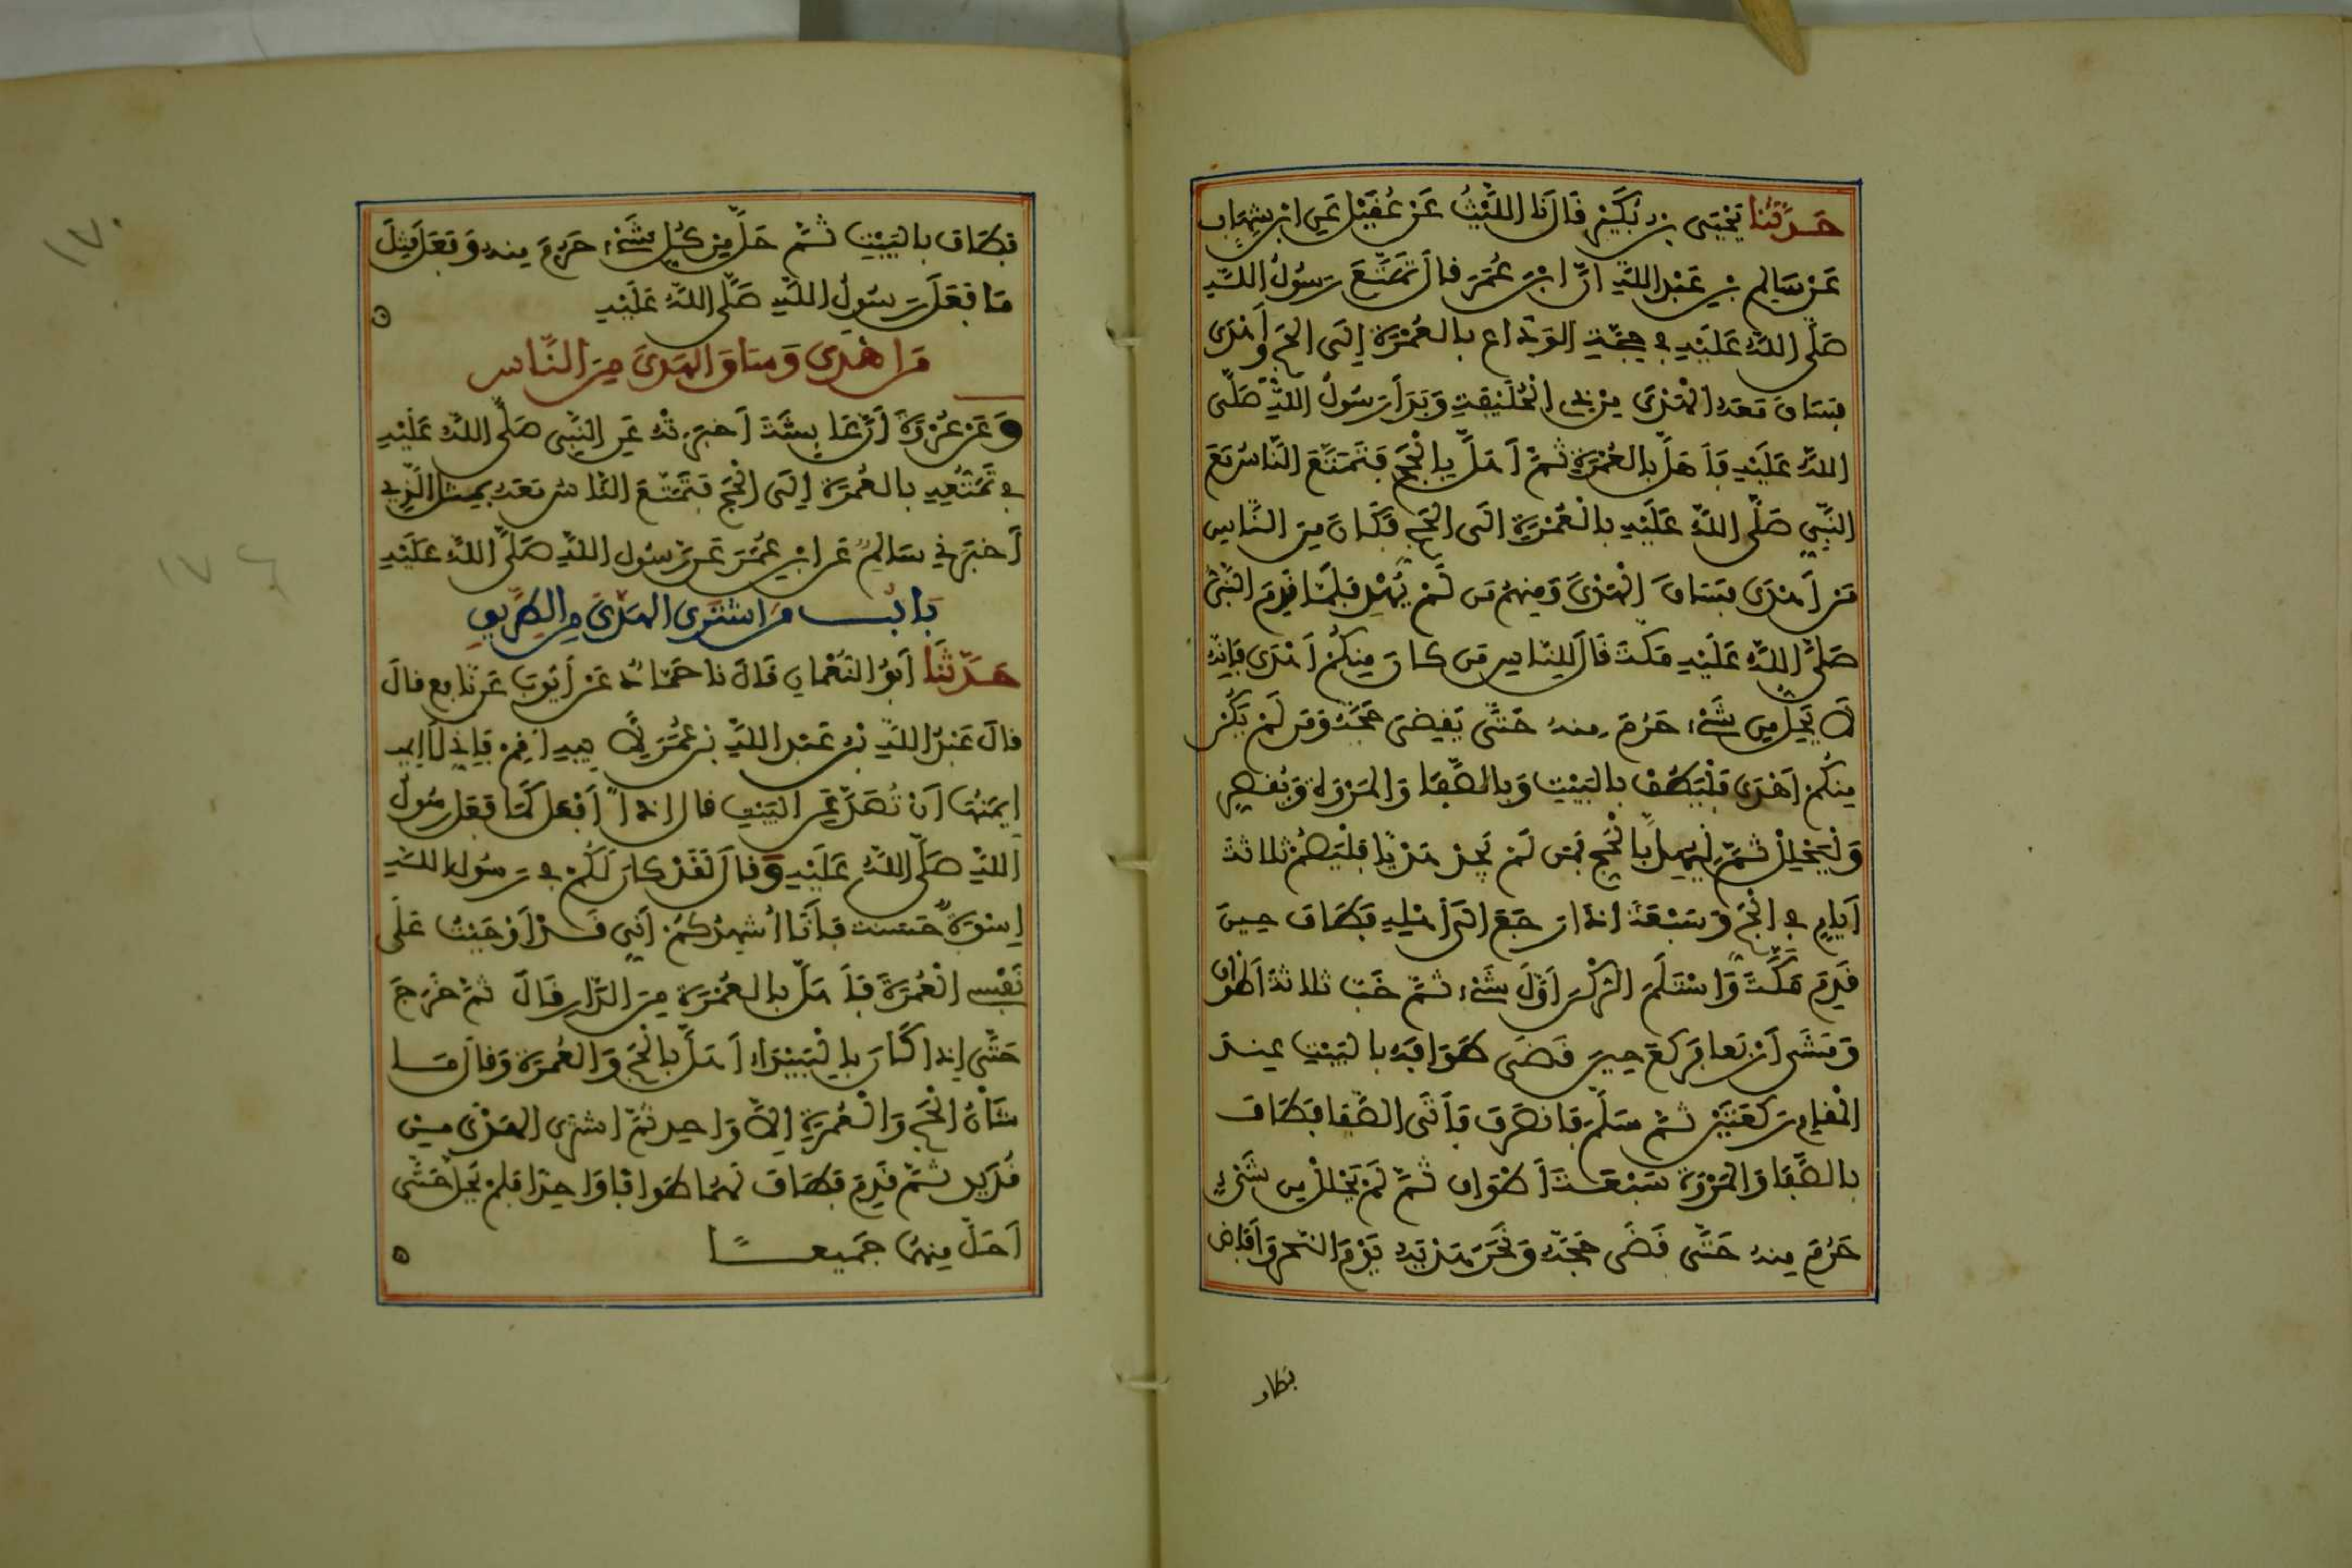 حَدَّثَنَا يَحْيَى بْنُ بُكَيْرٍ قَالَ نَا اللَّيْثُ عَنْ عُقَيْلٍ عَنِ ابْنِ شِهَابٍ
عَنْ سَالِمِ بْنِ عَبْدِ اللَّهِ أَنَّ ابْنَ عُمَرَ قَالَ تَمَتَّعَ رَسُولُ اللَّهِ
صَلَّى اللَّهُ عَلَيْهِ فِي حِجَّةِ الْوَدَاعِ بِالْعُمْرَةِ إِلَى الْحَجِّ وَأَهْدَى
فَسَاقَ مَعَهُ الْهَدْيَ مِنْ ذِي الْحُلَيْفَةِ وَبَدَأَ رَسُولُ اللَّهِ صَلَّى
اللَّهُ عَلَيْهِ فَأَهَلَّ بِالْعُمْرَةِ ثُمَّ أَهَلَّ بِالْحَجِّ فَتَمَتَّعَ النَّاسُ مَعَ
النَّبِيِّ صَلَّى اللَّهُ عَلَيْهِ بِالْعُمْرَةِ إِلَى الْحَجِّ فَكَانَ مِنَ النَّاسِ
مَنْ أَهْدَى فَسَاقَ الْهَدْيَ وَمِنْهُمْ مَنْ لَمْ يُهْدِ فَلَمَّا قَدِمَ النَّبِيُّ
صَلَّى اللَّهُ عَلَيْهِ مَكَّةَ قَالَ لِلنَّاسِ مَنْ كَانَ مِنْكُمْ أَهْدَى فَإِنَّهُ
لَا يَحِلُّ مِنْ شَيْءٍ حَرُمَ مِنْهُ حَتَّى يَقْضِيَ حَجَّهُ وَمَنْ لَمْ يَكُنْ
مِنْكُمْ أَهْدَى فَلْيَطُفْ بِالْبَيْتِ وَبِالصَّفَا وَالْمَرْوَةِ وَيُقَصِّرْ
وَلْيَحْلِلْ ثُمَّ لِيُهِلَّ بِالْحَجِّ فَمَنْ لَمْ يَجِدْ هَدْيًا فَلْيَصُمْ ثَلَاثَةَ
أَيَّامٍ فِي الْحَجِّ وَسَبْعَةً إِذَا رَجَعَ إِلَى أَهْلِهِ فَطَافَ حِينَ
قَدِمَ مَكَّةَ وَاسْتَلَمَ الرُّكْنَ أَوَّلَ شَيْءٍ ثُمَّ خَبَّ ثَلَاثَةَ أَطْوَافٍ
وَمَشَى أَرْبَعًا فَرَكَعَ حِينَ قَضَى طَوَافَهُ بِالْبَيْتِ عِنْدَ
الْمَقَامِ رَكْعَتَيْنِ ثُمَّ سَلَّمَ فَانْصَرَفَ فَأَتَى الصَّفَا فَطَافَ
بِالصَّفَا وَالْمَرْوَةِ سَبْعَةَ أَطْوَافٍ ثُمَّ لَمْ يَحْلِلْ مِنْ شَيْءٍ
حَرُمَ مِنْهُ حَتَّى قَضَى حَجَّهُ وَنَحَرَ هَدْيَهُ يَوْمَ النَّحْرِ وَأَفَاضَ
فطاف
١٧٠
فَطَافَ بِالْبَيْتِ ثُمَّ حَلَّ مِنْ كُلِّ شَيْءٍ حَرُمَ مِنْهُ وَفَعَلَ مِثْلَ
مَا فَعَلَ رَسُولُ اللَّهِ صَلَّى اللَّهُ عَلَيْهِ
مَنْ أَهْدَى وَسَاقَ الْهَدْيَ مِنَ النَّاسِ
وَعَنْ عُرْوَةَ أَنَّ عَائِشَةَ أَخْبَرَتْهُ عَنِ النَّبِيِّ صَلَّى اللَّهُ عَلَيْهِ
فِي تَمَتُّعِهِ بِالْعُمْرَةِ إِلَى الْحَجِّ فَتَمَتَّعَ النَّاسُ مَعَهُ بِمِثْلِ الَّذِي
أَخْبَرَنِي سَالِمٌ عَنِ ابْنِ عُمَرَ عَنْ رَسُولِ اللَّهِ صَلَّى اللَّهُ عَلَيْهِ
بَابُ مَنِ اشْتَرَى الْهَدْيَ مِنَ الطَّرِيقِ
حَدَّثَنَا أَبُو النُّعْمَانِ قَالَ نَا حَمَّادٌ عَنْ أَيُّوبَ عَنْ نَافِعٍ قَالَ
قَالَ عَبْدُ اللَّهِ بْنُ عَبْدِ اللَّهِ بْنِ عُمَرَ لِأَبِيهِ أَقِمْ فَإِنِّي لَا
إِيمَنُهَا أَنْ تُصَدَّ عَنِ الْبَيْتِ قَالَ إِذًا أَفْعَلَ كَمَا فَعَلَ رَسُولُ
اللَّهِ صَلَّى اللَّهُ عَلَيْهِ وَقَالَ لَقَدْ كَانَ لَكُمْ فِي رَسُولِ اللَّهِ
إِسْوَةٌ حَسَنَةٌ فَأَنَا أُشْهِدُكُمْ أَنِّي قَدْ أَوْجَبْتُ عَلَى
نَفْسِي الْعُمْرَةَ فَأَهَلَّ بِالْعُمْرَةِ مِنَ الدَّارِ قَالَ ثُمَّ خَرَجَ
حَتَّى إِذَا كَانَ بِالْبَيْدَاءِ أَهَلَّ بِالْحَجِّ وَالْعُمْرَةِ وَقَالَ مَا
شَأْنُ الْحَجِّ وَالْعُمْرَةِ إِلَّا وَاحِدٌ ثُمَّ اشْتَرَى الْهَدْيَ مِنْ
قُدَيْدٍ ثُمَّ قَدِمَ فَطَافَ لَهُمَا طَوَافًا وَاحِدًا فَلَمْ يَحِلَّ حَتَّى
أَحَلَّ مِنْهُمَا جَمِيعًا